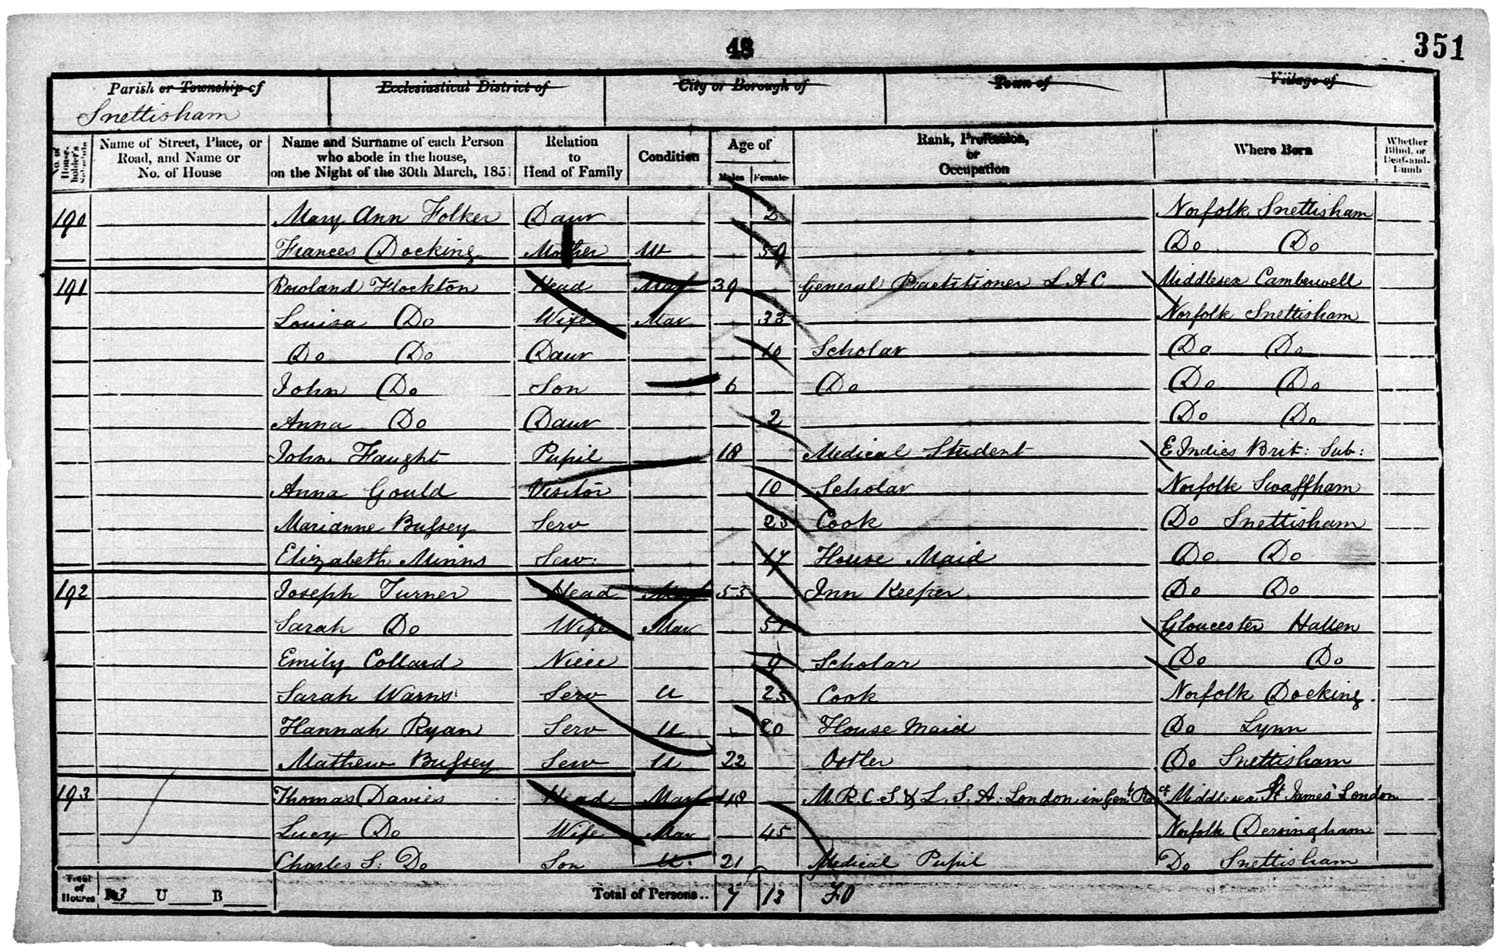 48
351
Parish or Township of
Ecclesiastical District of
City or Borough of
Town of
Village of
Snettisham
No. of House-holder's Schedule
Name of Street, Place, or Road, and Name or No. of House
Name and Surname of each Person who abode in the house, on the Night of the 30th March, 1851
Relation to Head of Family
Condition
Age of
Males
Females
Rank, Profession, or Occupation
Where Born
Whether Blind, or Deaf-and-Dumb
190 Mary Ann Folker Daur 2 Norfolk Snettisham
Frances Docking Mother U 59 Do Do
191 Rowland Flockton Head Mar 39 General Practitioner L A C Middlesex Camberwell
Louisa Do Wife Mar 33 Norfolk Snettisham
Do Do Daur 10 Scholar Do Do
John Do Son 6 Do Do Do
Anna Do Daur 2 Do Do
John Faught Pupil 18 Medical Student E Indies Brit: Sub:
Anna Gould Visitor 10 Scholar Norfolk Swaffham
Marianne Bussey Serv 23 Cook Do Snettisham
Elizabeth Minns Serv: 17 House Maid Do Do
192 Joseph Turner Head Mar 53 Inn Keeper Do Do
Sarah Do Wife Mar 51 Gloucester Hallen
Emily Collard Niece 9 Scholar Do Do
Sarah Warns Serv U 25 Cook Norfolk Docking
Hannah Ryan Serv U 20 House Maid Do Lynn
Mathew Bussey Serv U 22 Ostler Do Snettisham
193 Thomas Davies Head Mar 48 M R C S & L. S. A. London in Genl Middlesex St James' London
Lucy Do Wife Mar 45 Norfolk Dersingham
Charles S: Do Son U. 21 Medical Pupil Do Snettisham
Total of Houses
I 3 U B
Total of Persons.. 7 13 20